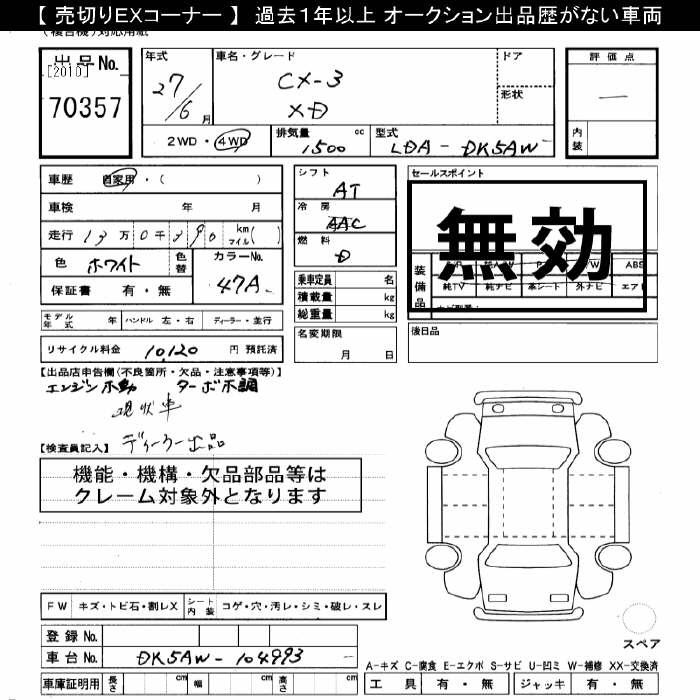 【 売切りEXコーナー 】 過去1年以上 オークション出品歴がない車両
(複合機)対応用紙
出品No.
[2010]
70357
年式
27/6月
車名・グレード
CX-3
XD
ドア
形状
評価点
—
内装
2WD・4WD
排気量 1500 cc
型式 LDA-DK5AW
車歴 自家用・( )
車検 年 月
走行 13万0千390 km マイル( )
色 ホワイト 色替
カラーNo. 47A
保証書 有・無
シフト AT
冷房 AAC
燃料 D
乗車定員 名
積載量 kg
総重量 kg
セールスポイント
無効
装備品
ABS
純TV 純ナビ 革シート 外ナビ エアB
モデル年式 年 ハンドル 左・右 ディーラー・並行
名変期限
月 日
後日品
リサイクル料金 10,120 円 預託済
【出品店申告欄(不良箇所・欠品・注意事項等)】
エンジン不動 ターボ不調
現状車
ディーラー出品
【検査員記入】
機能・機構・欠品部品等は
クレーム対象外となります
FW キズ・トビ石・割レX シート内装 コゲ・穴・汚レ・シミ・破レ・スレ
登録No.
車台No. DK5AW-104993
車庫証明用 長さ cm 幅 cm 高さ cm
スペア
A-キズ C-腐食 E-エクボ S-サビ U-凹ミ W-補修 XX-交換済
工具 有・無 ジャッキ 有・無